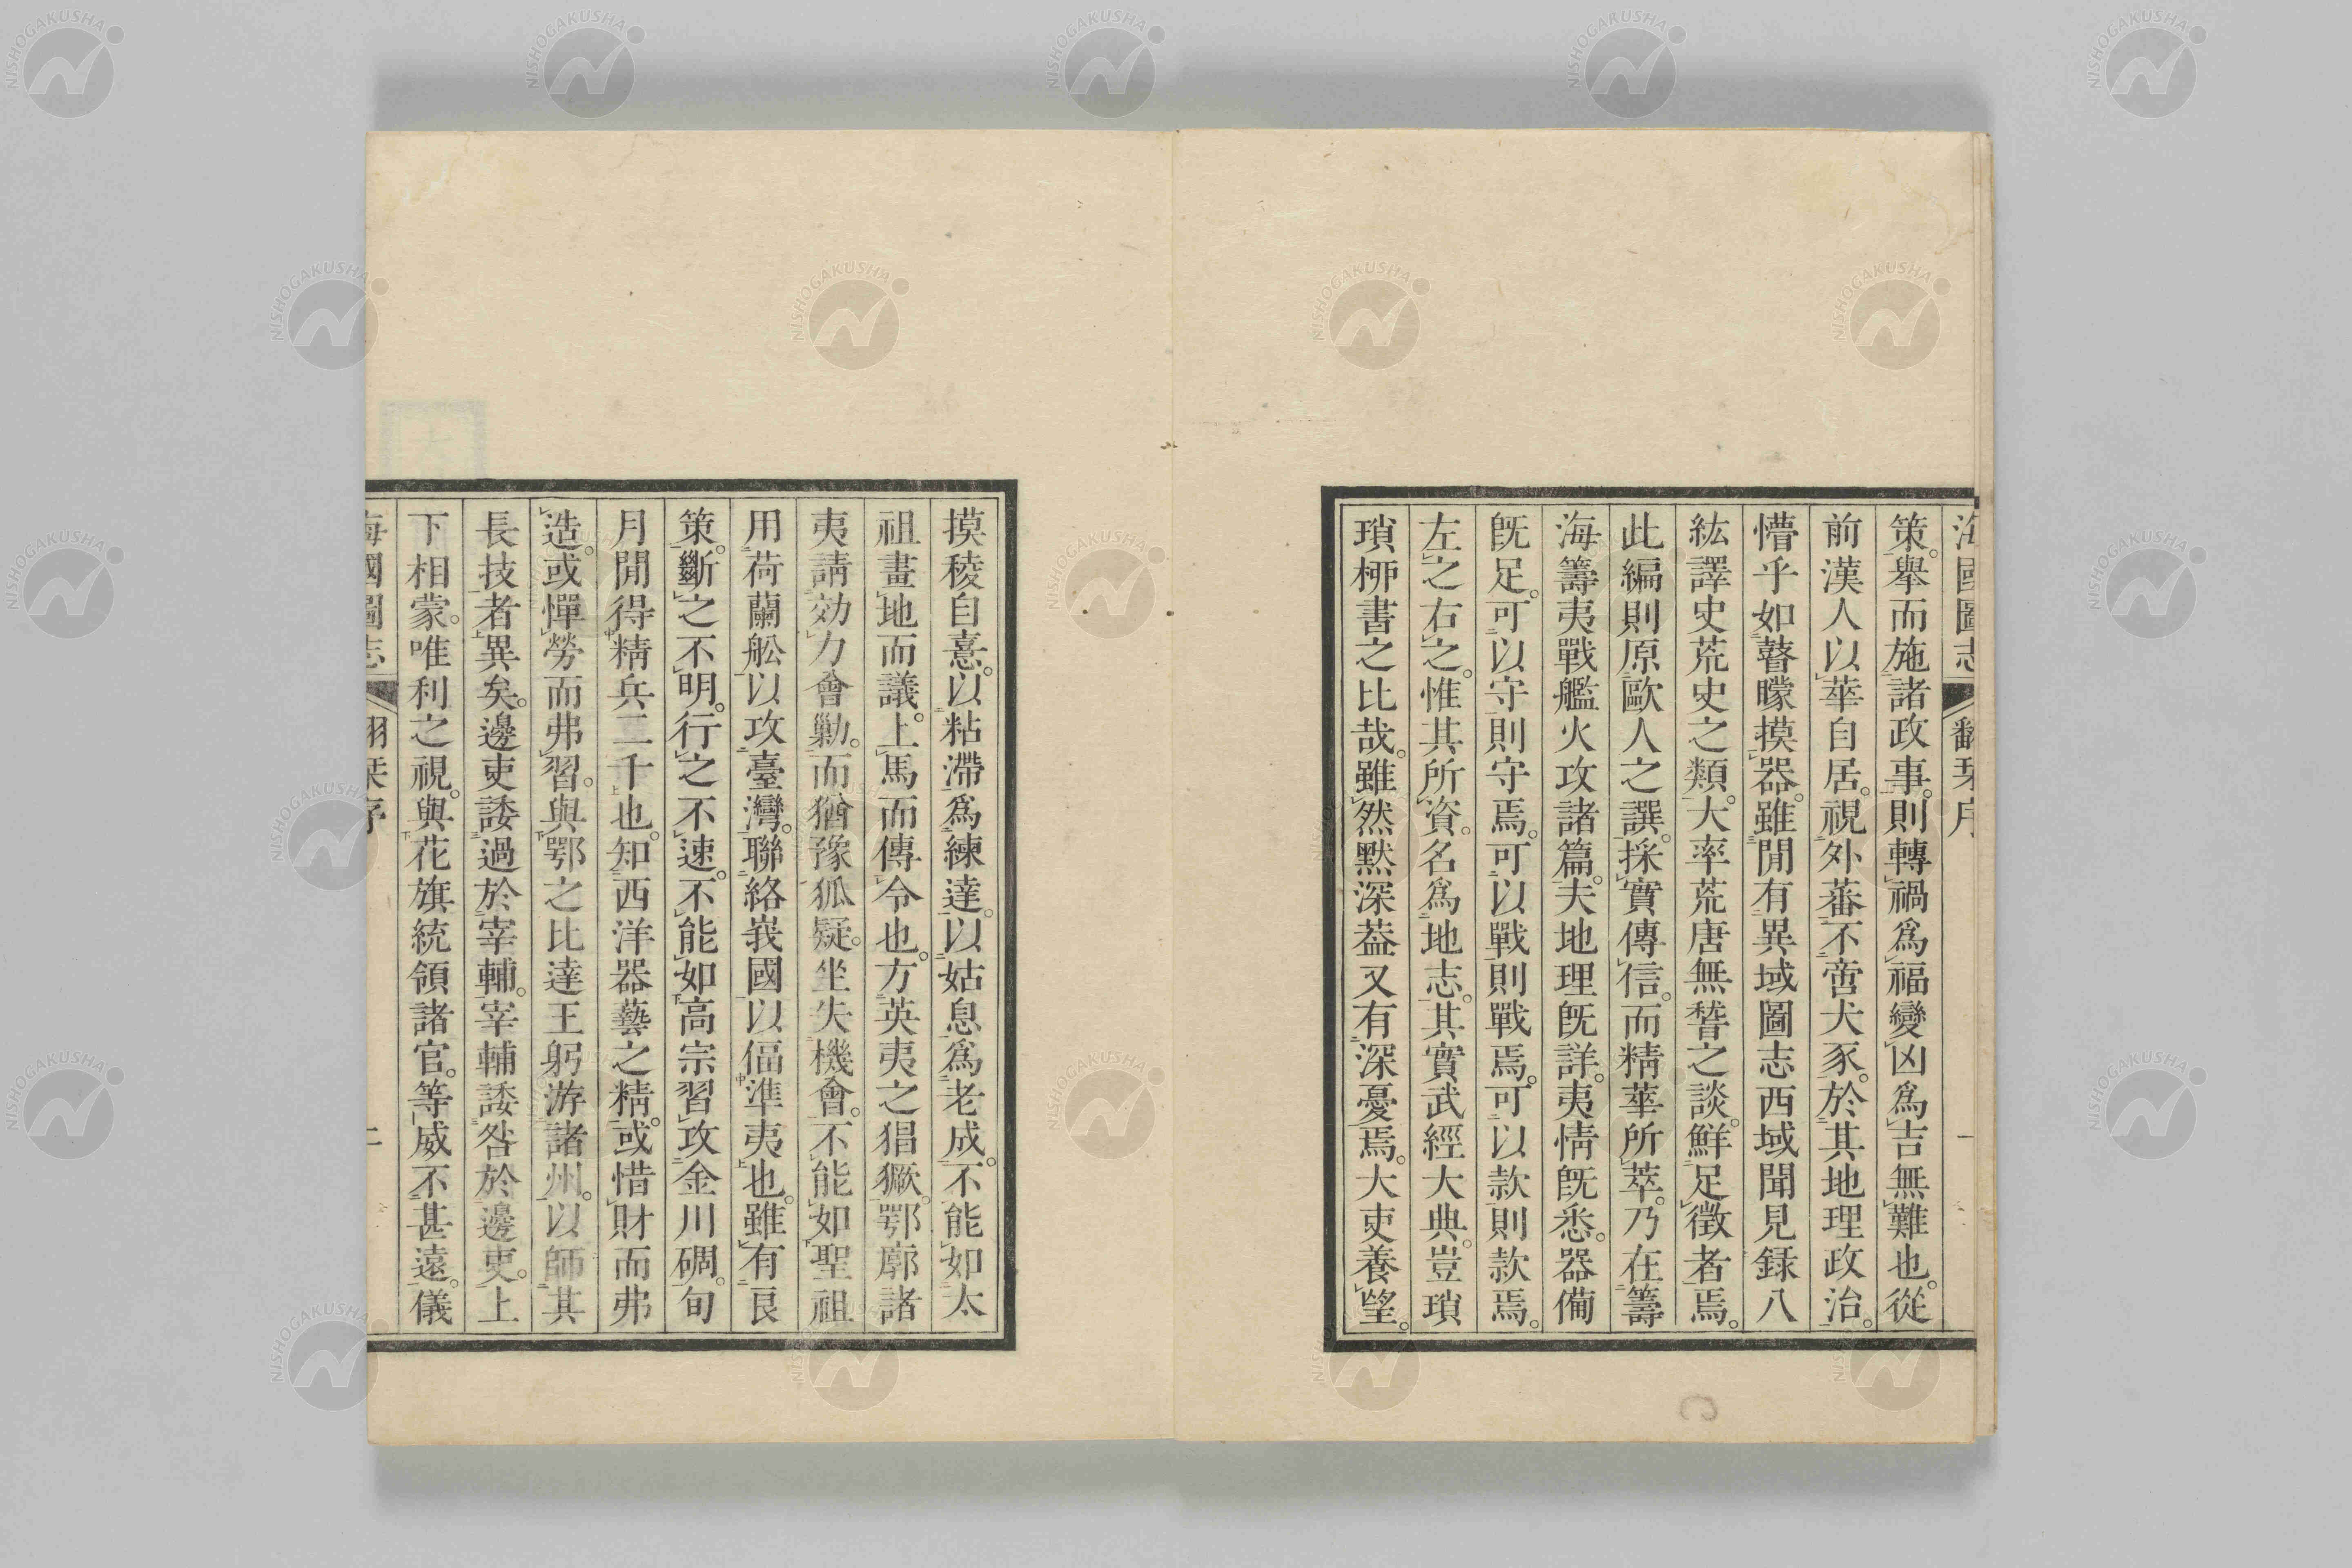 海國圖志 翻栞序 一
策。舉而施諸政事。則轉禍爲福變凶爲吉無難也。從
前漢人以華自居。視外蕃不啻犬豕。於其地理政治。
懵乎如瞽矇摸器。雖閒有異域圖志西域聞見錄八
紘譯史荒史之類。大率荒唐無稽之談。鮮足徵者焉。
此編則原歐人之譔。採實傳信。而精華所萃。乃在籌
海籌夷戰艦火攻諸篇。夫地理既詳。夷情既悉。器備
既足。可以守則守焉。可以戰則戰焉。可以款則款焉。
左之右之。惟其所資。名爲地志。其實武經大典。豈瑣
瑣柳書之比哉。雖然默深葢又有深憂焉。大吏養望。
摸稜自憙。以粘滯爲練達。以姑息爲老成。不能如太
祖畫地而議。上馬而傳令也。方英夷之猖獗。鄂廓諸
夷請効力會勦。而猶豫狐疑。坐失機會。不能如聖祖
用荷蘭舩以攻臺灣。聯絡峩國以偪準夷也。雖有良
策。斷之不明。行之不速。不能如高宗習攻金川碉。旬
月閒得精兵二千也。知西洋器藝之精。或惜財而弗
造。或憚勞而弗習。與鄂之比達王躬游諸州。以師其
長技者異矣。邊吏諉過於宰輔。宰輔諉咎於邊吏。上
下相蒙。唯利之視。與花旗統領諸官。等威不甚遠。儀
海國圖志 翻栞序 二
NISHOGAKUSHA